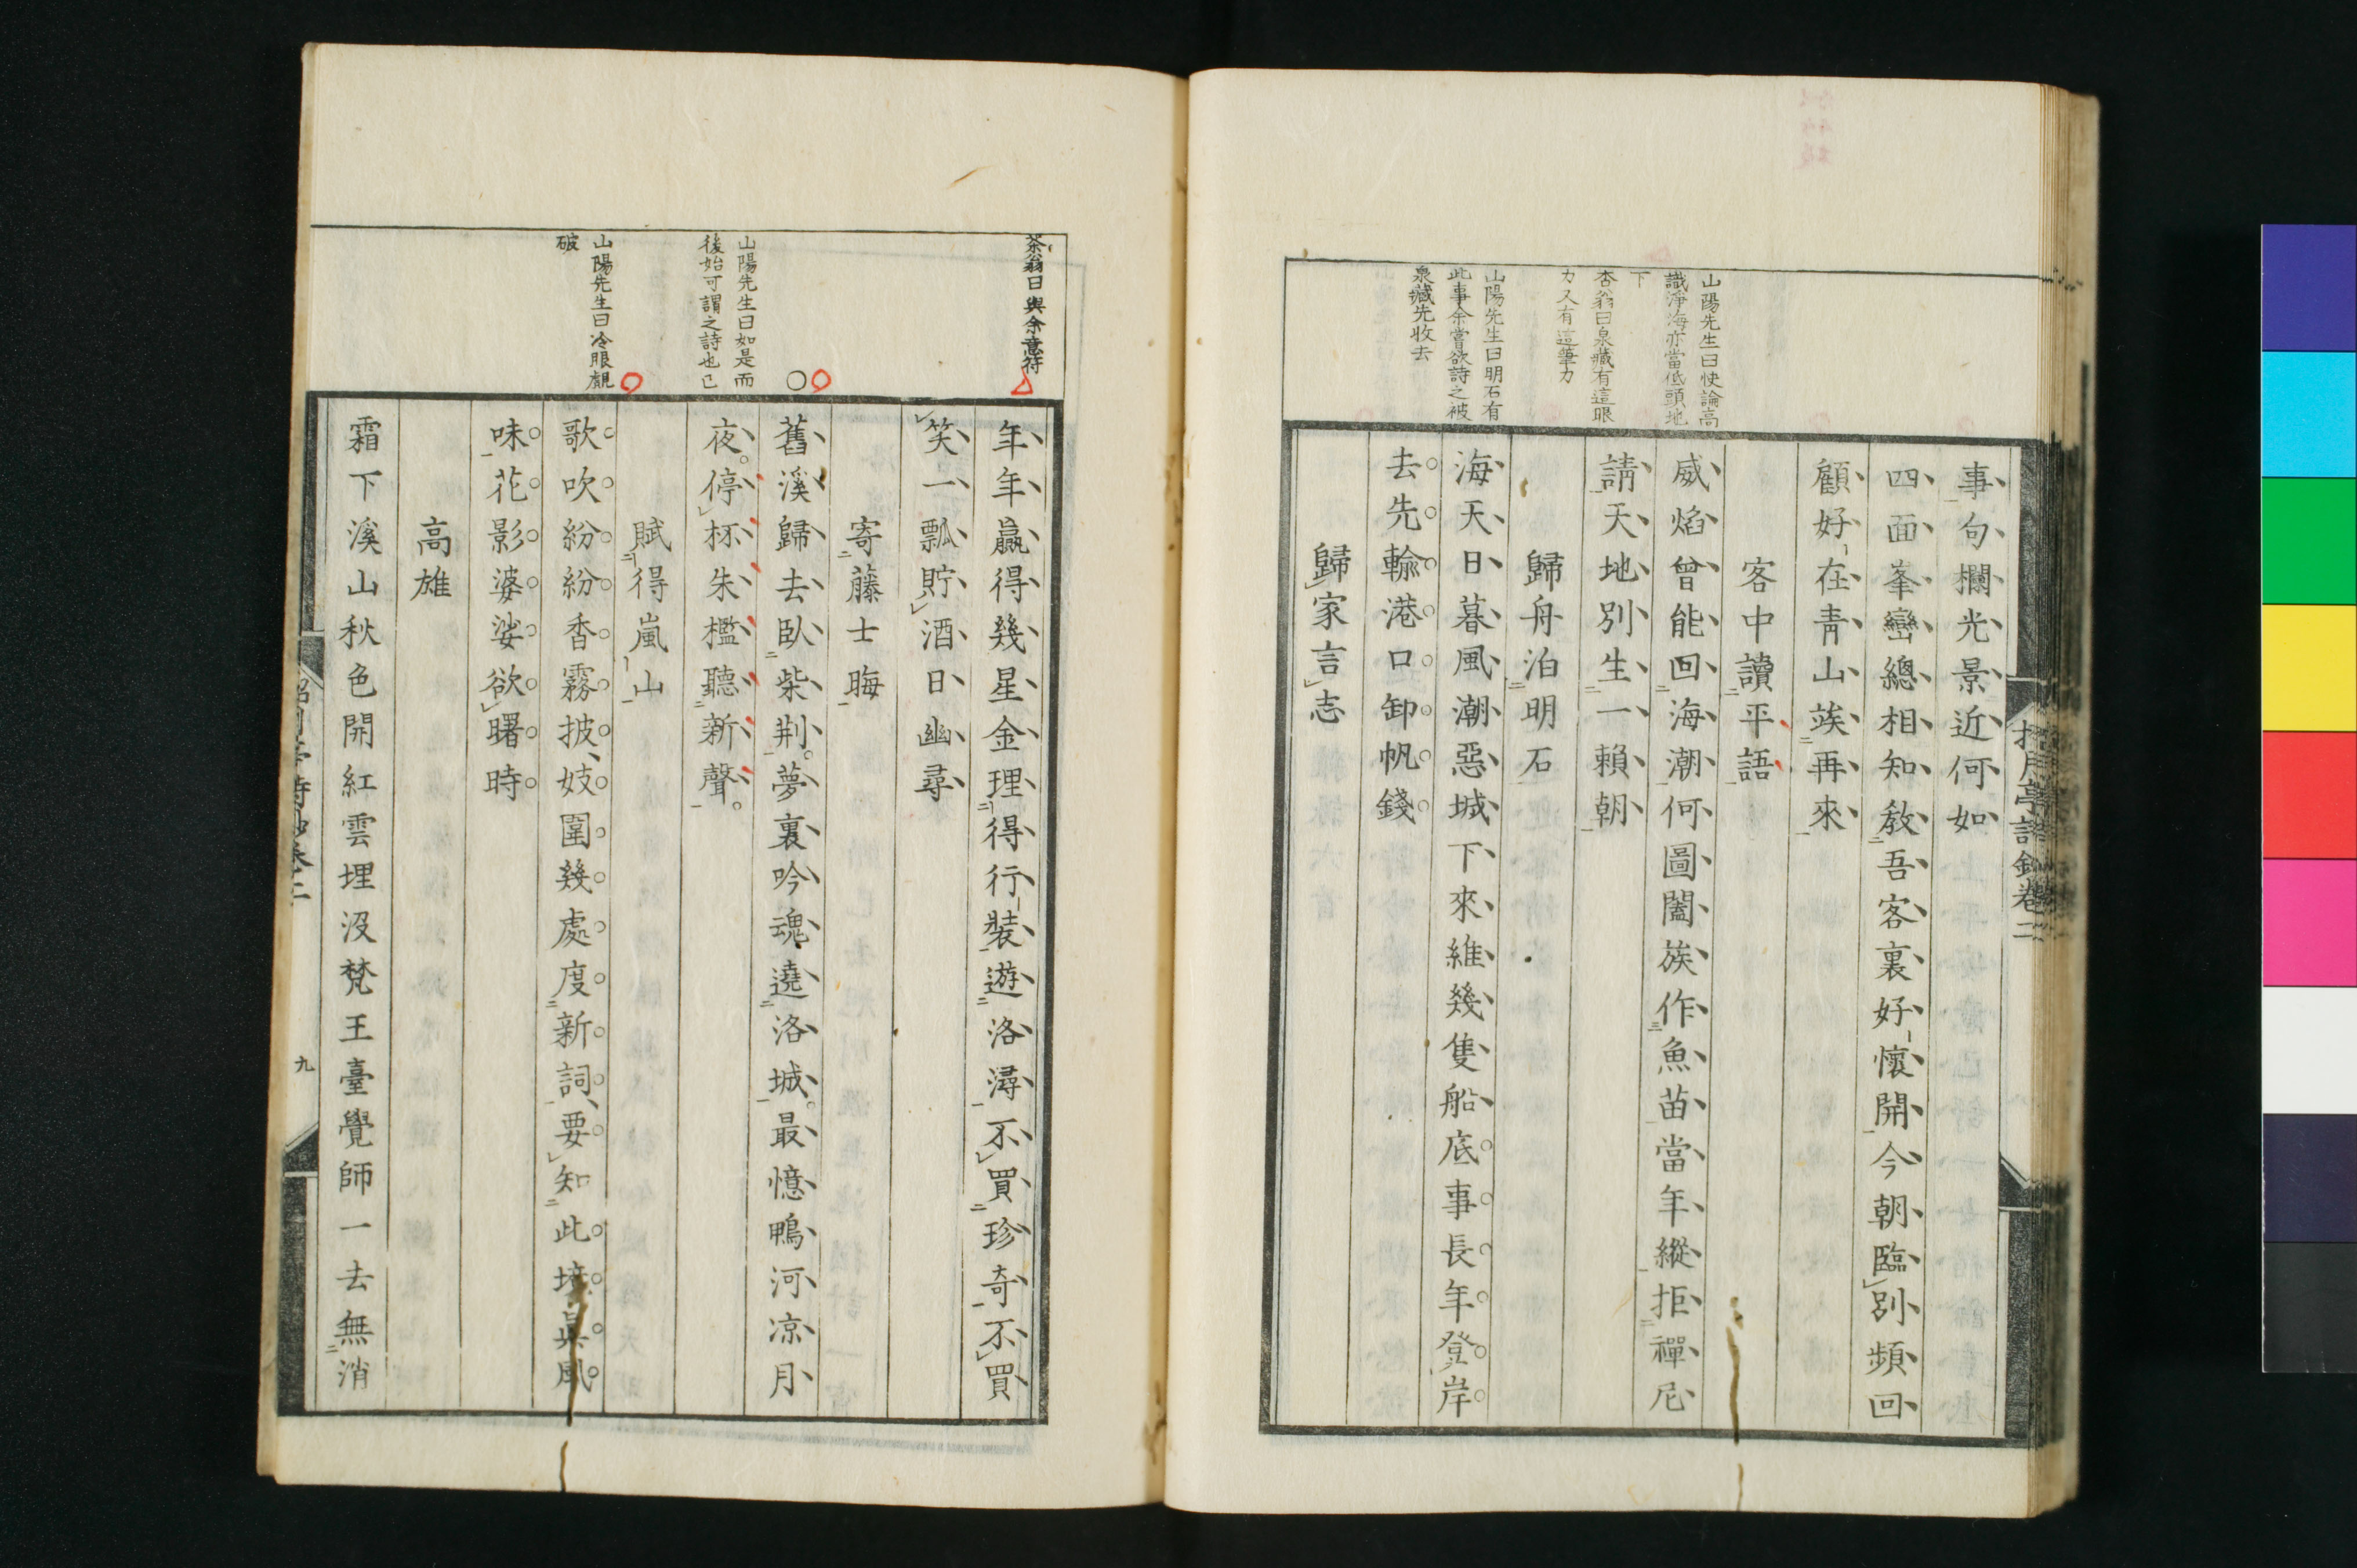 山陽先生曰快論高
識淨海亦當低頭地
下
杏翁曰泉藏有這眼
力又有這筆力
山陽先生曰明石有
此事余嘗欲詩之被
泉藏先收去
事句欄光景近何如
四面峯巒總相知教吾客裏好懷開今朝臨別頻回
顧好在青山竢再來
客中讀平語
威焰曾能回海潮何圖闔族作魚苗當年縱拒禪尼
請天地別生一賴朝
歸舟泊明石
海天日暮風潮惡城下來維幾隻船底事長年登岸
去先輸港口卸帆錢
歸家言志
茶翁曰與余意符
山陽先生曰如是而
後始可謂之詩也已
山陽先生曰冷眼覷
破
年年贏得幾星金理得行裝遊洛潯不買珍奇不買
笑一瓢貯酒日幽尋
寄藤士晦
舊溪歸去臥柴荆夢裏吟魂遶洛城最憶鴨河凉月
夜停杯朱檻聽新聲
賦得嵐山
歌吹紛紛香霧披妓圍幾處度新詞要知此境眞風
味花影婆娑欲曙時
高雄
霜下溪山秋色開紅雲埋沒梵王臺覺師一去無消
九